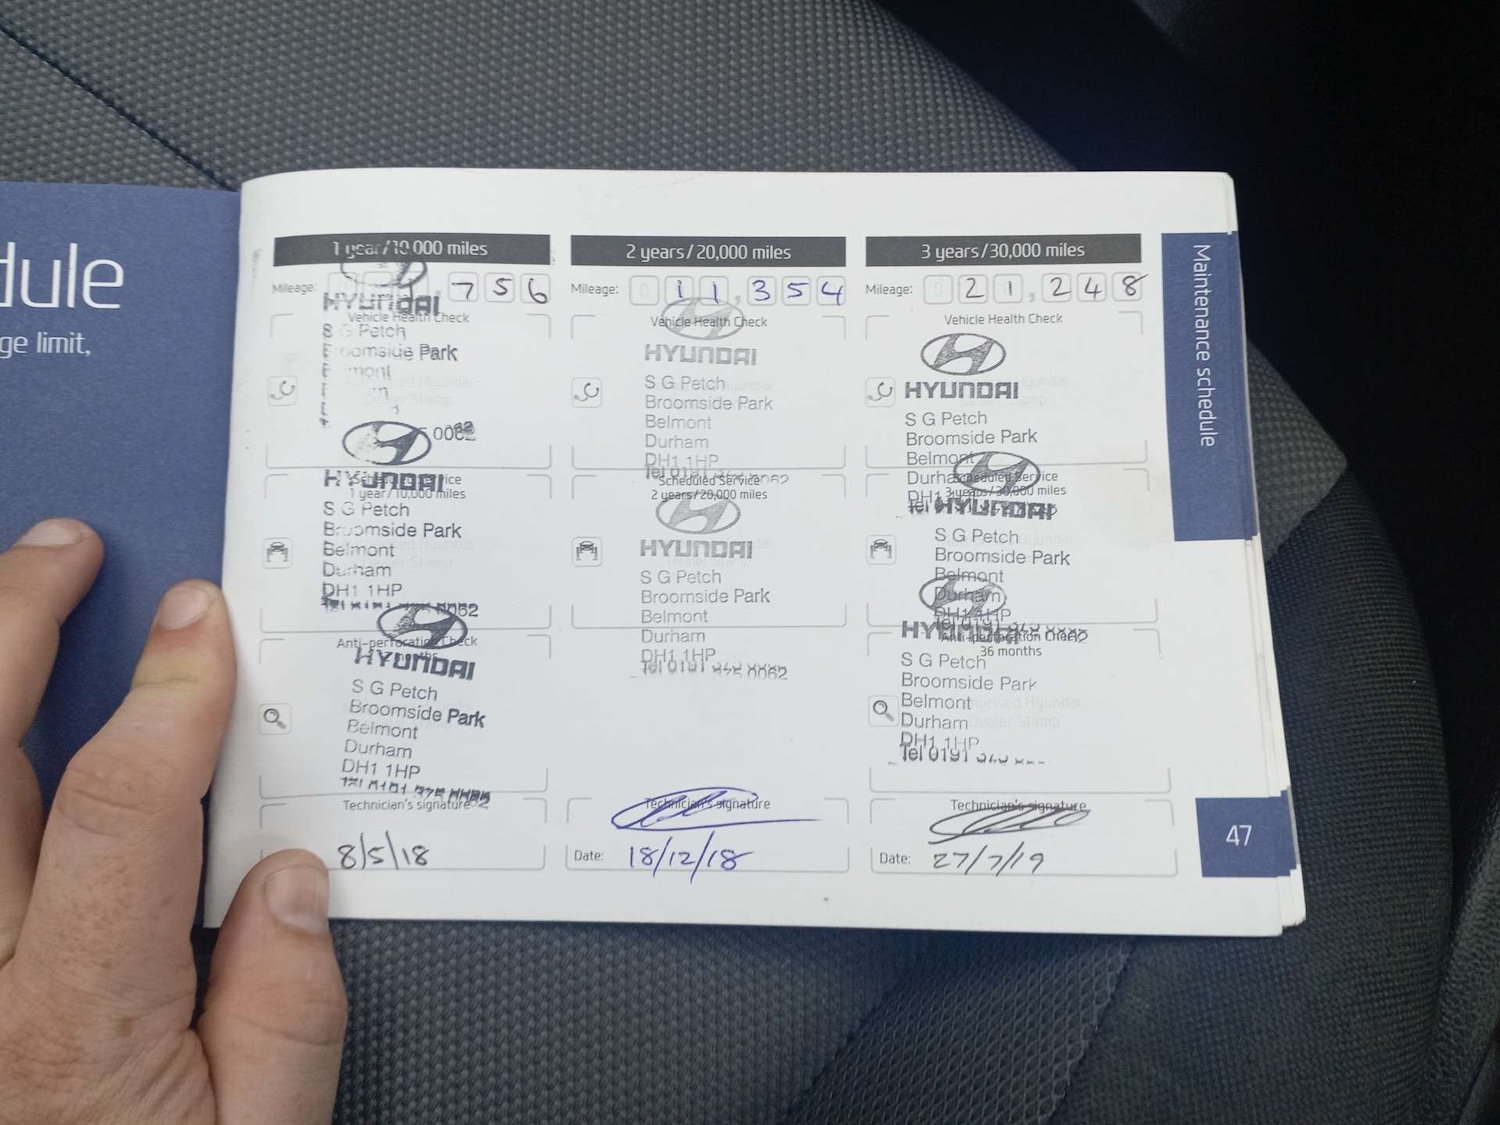 dule
ge limit,
1 year/10 000 miles
Mileage: 756
HYUNDAI
Vehicle Health Check
S G Petch
Broomside Park
0062
HYUNDAI
1 year/10,000 miles
S G Petch
Broomside Park
Belmont
Durham
DH1 1HP
0062
Anti-perforation Check
HYUNDAI
S G Petch
Broomside Park
Belmont
Durham
DH1 1HP
Technician's signature
8/5/18
2 years/20,000 miles
Mileage: 11,354
Vehicle Health Check
HYUNDAI
S G Petch
Broomside Park
Belmont
Durham
DH1 1HP
Scheduled Service
2 years/20,000 miles
HYUNDAI
S G Petch
Broomside Park
Belmont
Durham
DH1 1HP
Tel 0191 0062
Technician's signature
Date: 18/12/18
3 years/30,000 miles
Mileage: 21,248
Vehicle Health Check
HYUNDAI
S G Petch
Broomside Park
Belmont
Durham
DH1
Scheduled Service
3 years/30,000 miles
HYUNDAI
S G Petch
Broomside Park
Belmont
Durham
DH1 1HP
Anti-perforation Check
36 months
HYUNDAI
S G Petch
Broomside Park
Belmont
Durham
DH1 1HP
Tel 0191
Technician's signature
Date: 27/7/19
Maintenance schedule
47